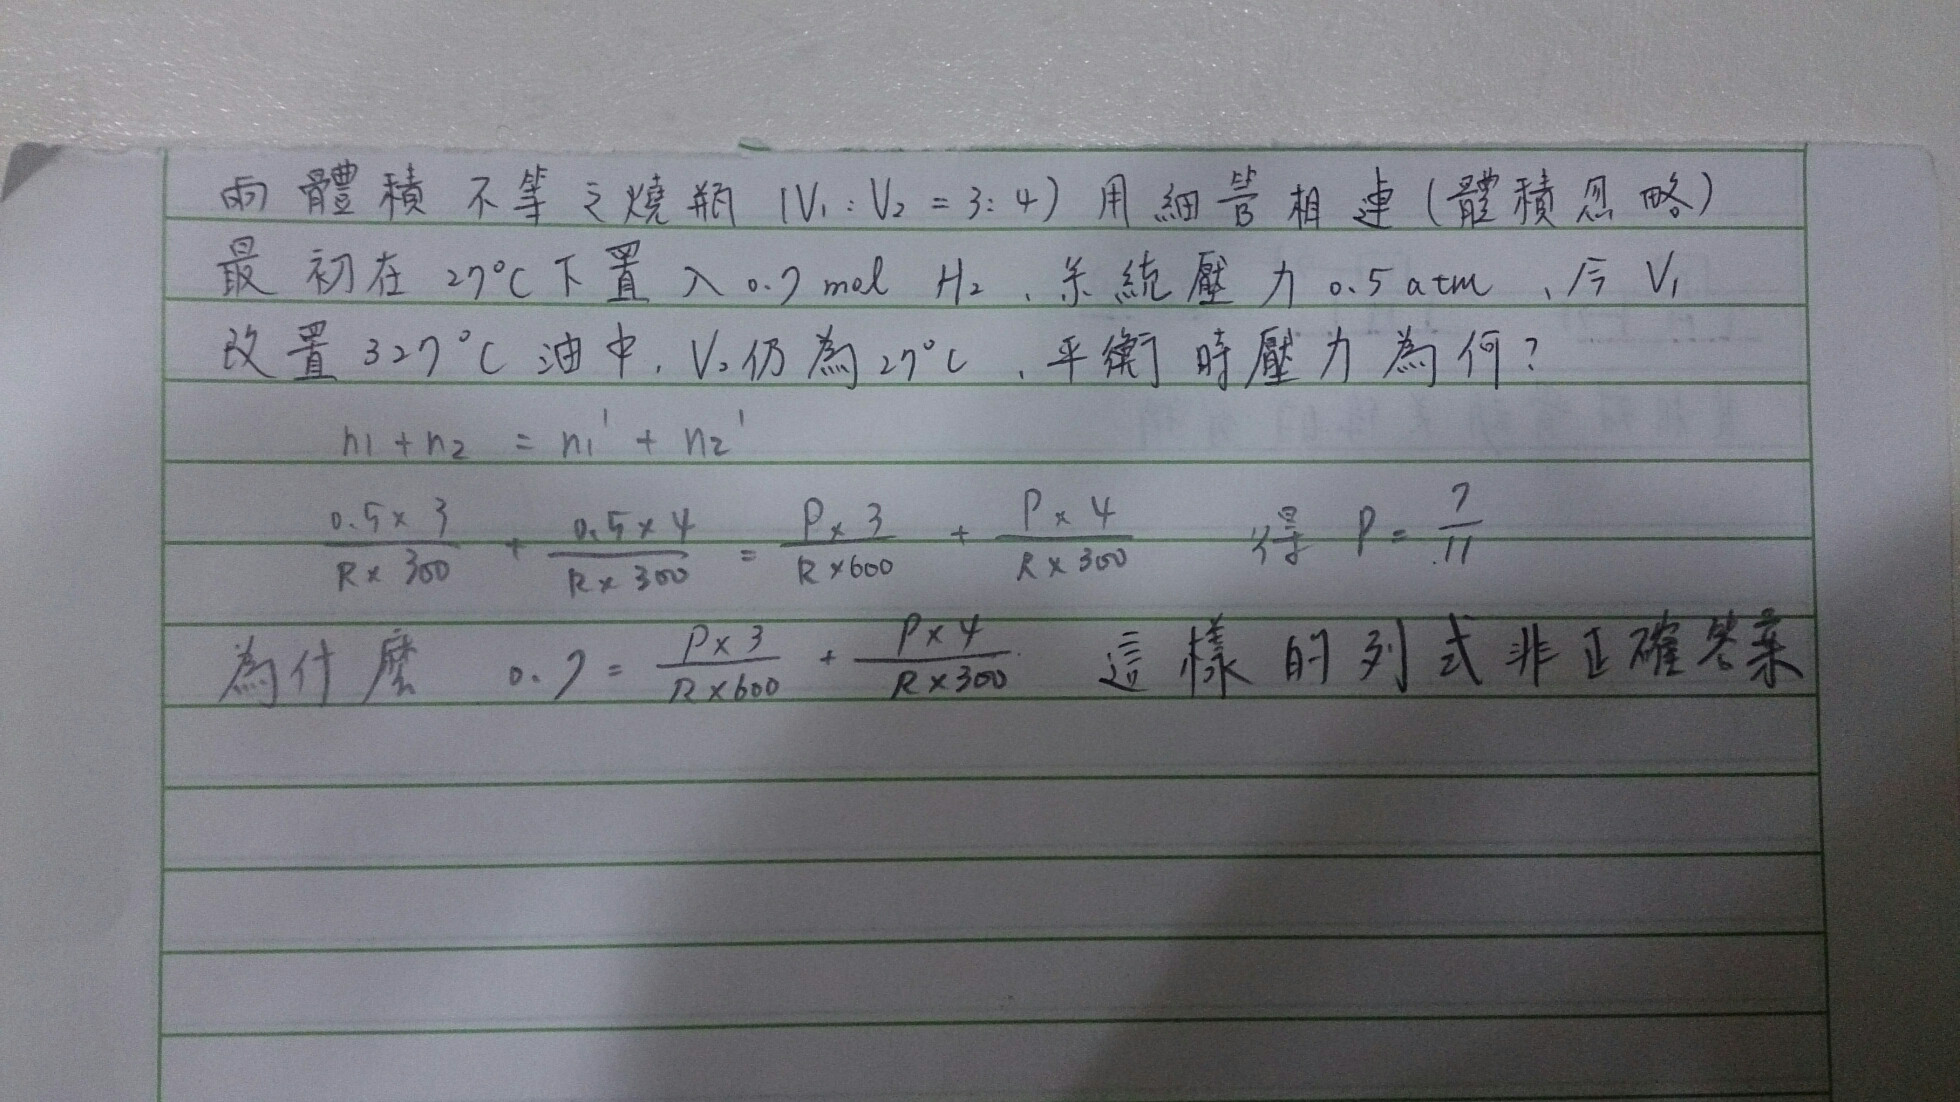 兩體積不等之燒瓶(V₁:V₂=3:4)用細管相連(體積忽略)
最初在27°C下置入0.7mol H₂、系統壓力0.5atm、后V₁
改置327°C油中、V₂仍為27°C、平衡時壓力為何?
n1+n2 = n1'+n2'
0.5×3/R×300 + 0.5×4/R×300 = P×3/R×600 + P×4/R×300 得 P=7/11
為什麼 0.7= P×3/R×600 + P×4/R×300 這樣的列式非正確答案